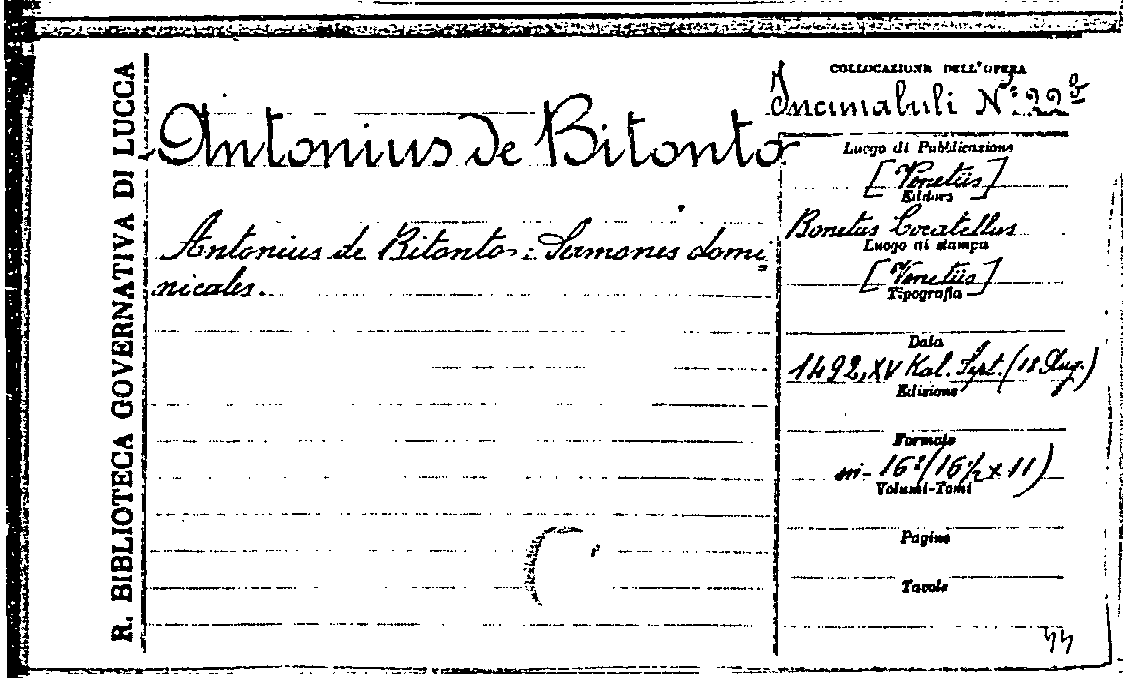 R. BIBLIOTECA GOVERNATIVA DI LUCCA
Antonius de Bitonto
Antonius de Bitonto: Sermones domi=
nicales.
COLLOCAZIONE DELL'OPERA
Incunabuli N.: 22
Luogo di Pubblicazione
[Venetiis]
Editore
Bonetus Locatellus
Luogo di stampa
[Venetiis]
Tipografia
Data
1492, XV Kal. Sept. (18 Aug.)
Edizione
Formato
in-16º (16 ½ x 11)
Volumi-Tomi
Pagine
Tavole
44